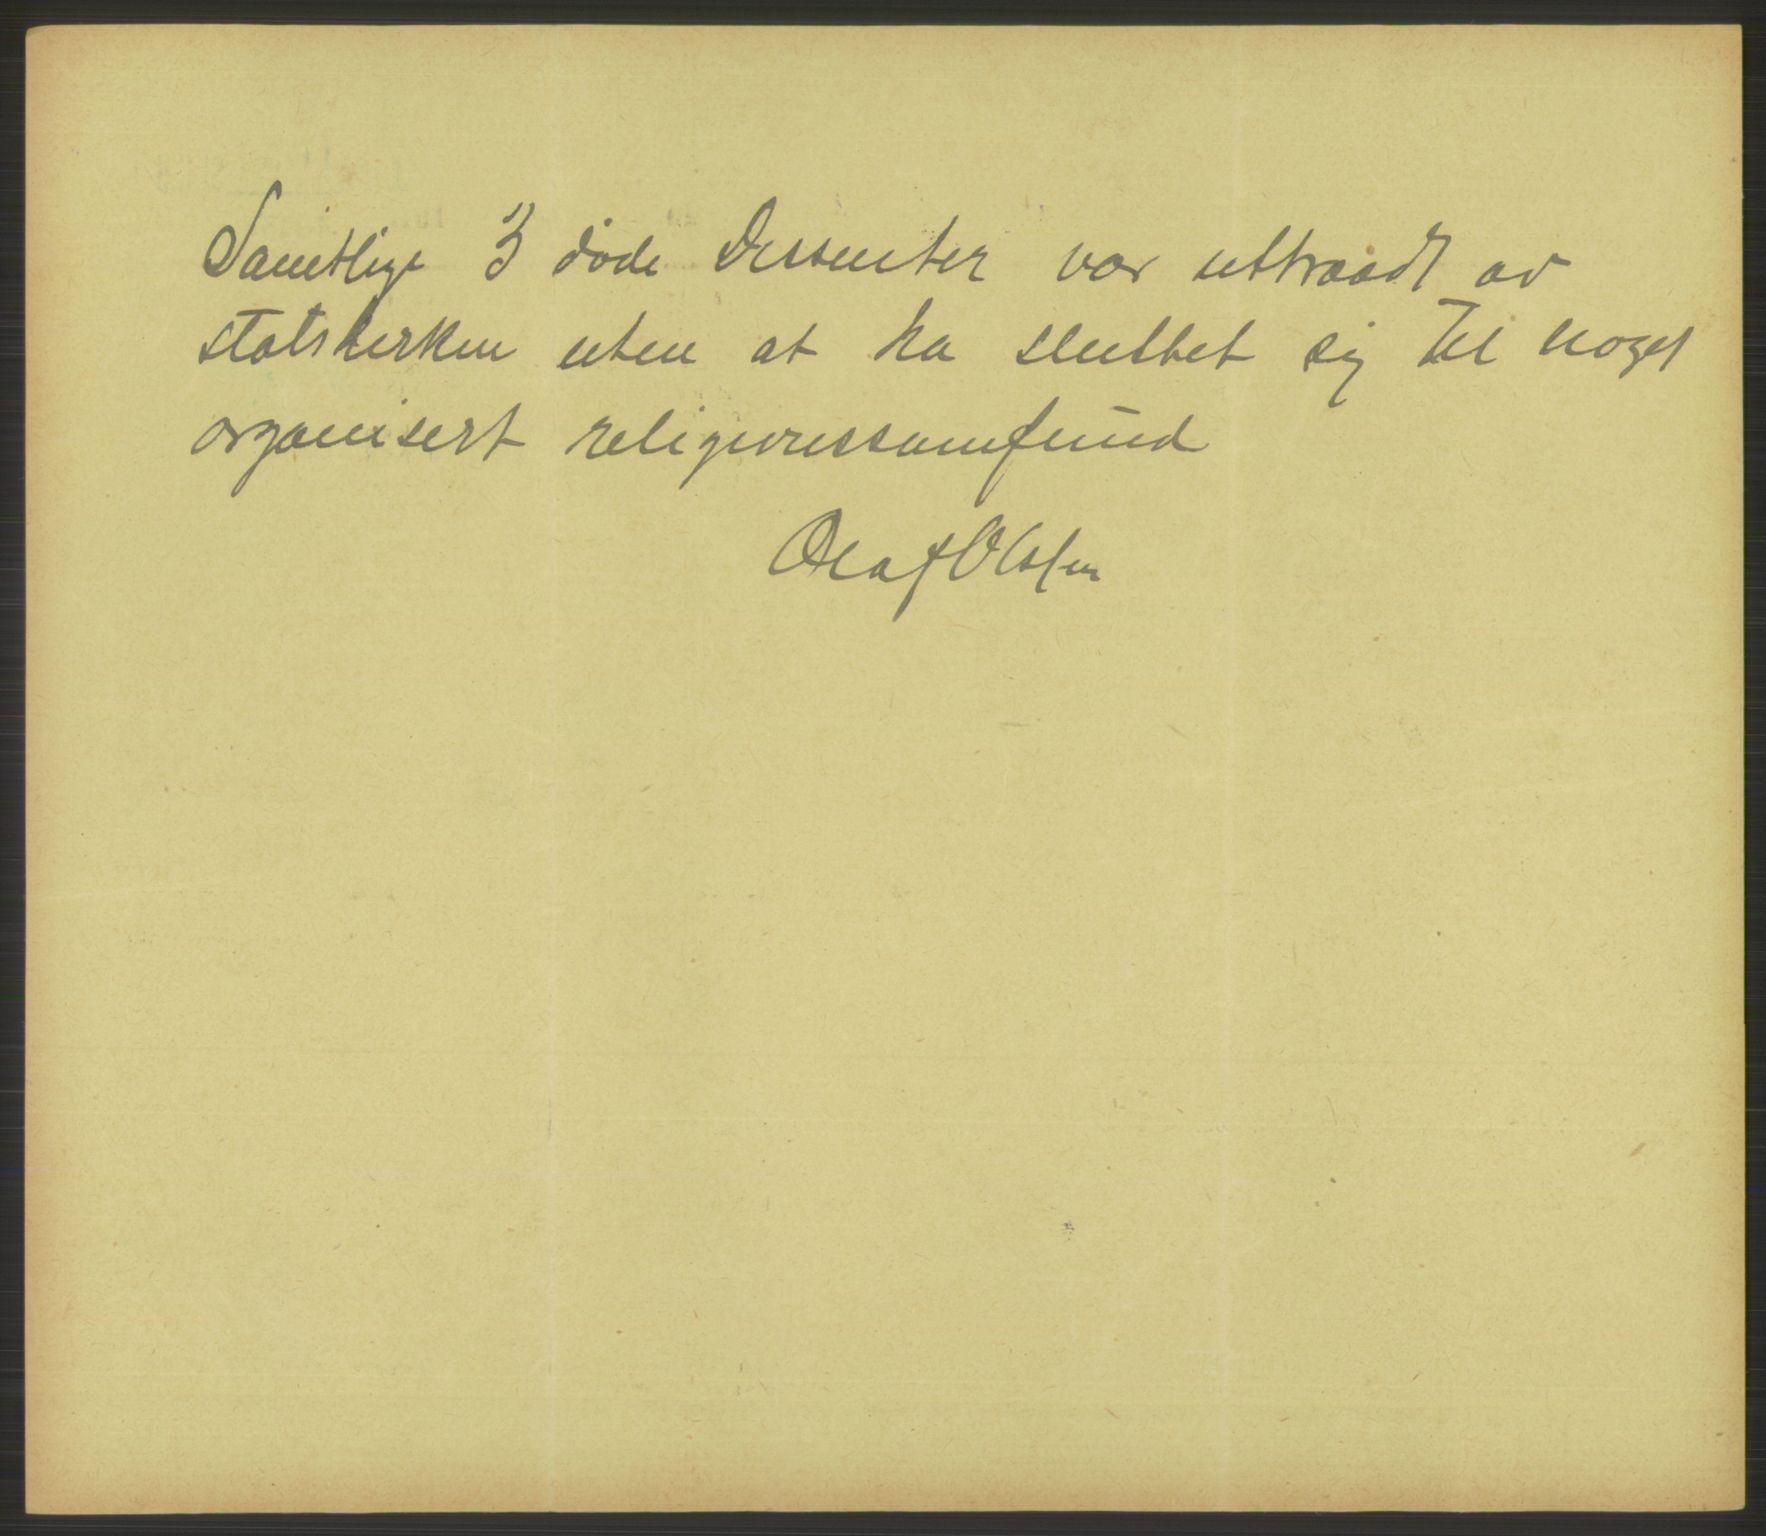 Samtlige 3 døde Dissenter var uttraadt av
statskirken uten at ha sluttet sig til noget
organisert religionssamfund
Olaf Olsen